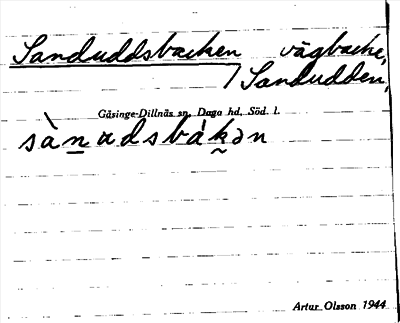 Sanduddsbacken vägbacke,
/Sandudden,
Gåsinge-Dillnäs sn, Daga hd, Söd. l.
sànadsbàkən
Artur Olsson 1944